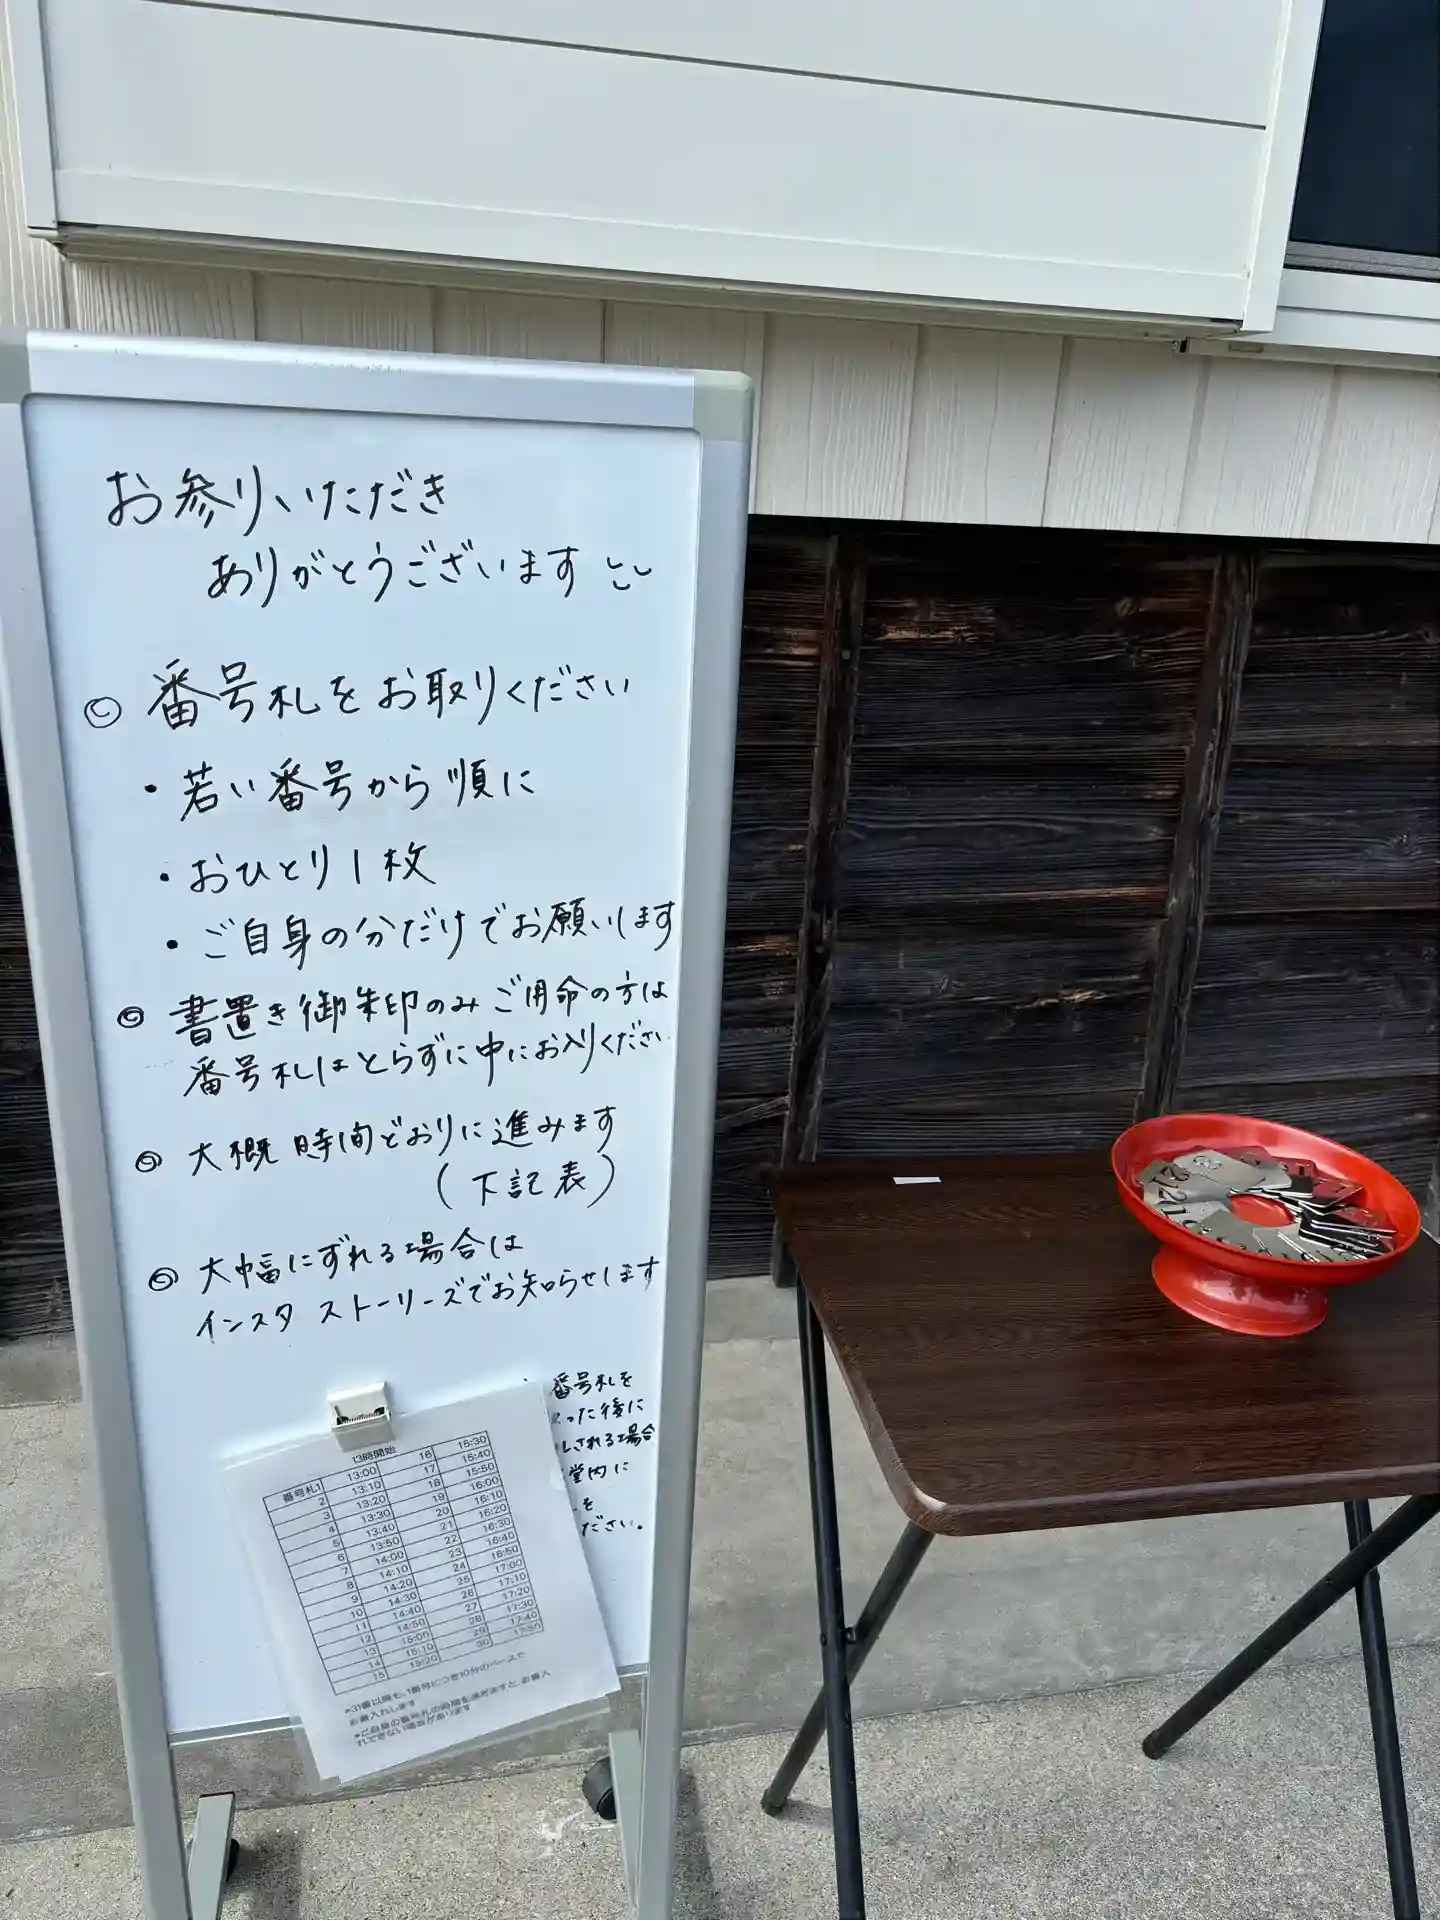 お参りいただき
ありがとうございます
◎ 番号札をお取りください
・若い番号から順に
・おひとり1枚
・ご自身の分だけでお願いします
◎ 書置き御朱印のみご用命の方は
番号札はとらずに中にお入りください
◎ 大概時間どおりに進みます
(下記表)
◎ 大幅にずれる場合は
インスタ ストーリーズでお知らせします
番号札を
った後に
しされる場合
堂内に
を
ださい。
13時開始
番号札1 13:00 16 15:30
2 13:10 17 15:40
3 13:20 18 15:50
4 13:30 19 16:00
5 13:40 20 16:10
6 13:50 21 16:20
7 14:00 22 16:30
8 14:10 23 16:40
9 14:20 24 16:50
10 14:30 25 17:00
11 14:40 26 17:10
12 14:50 27 17:20
13 15:00 28 17:30
14 15:10 29 17:40
15 15:20 30 17:50
*31番以降も、1番号につき10分のペースで
お書入れします
*ご自身の番号札の時間を過ぎますと、お書入
れできない場合があります
21